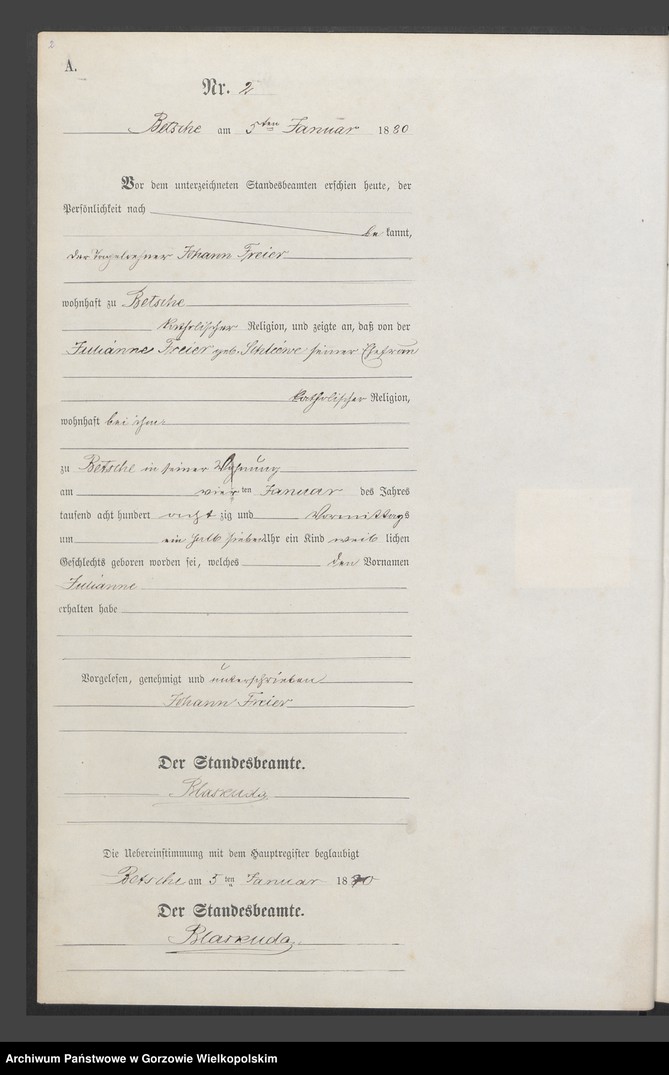 2
A.
Nr. 2
Betsche am 5ten Januar 1880
Vor dem unterzeichneten Standesbeamten erschien heute, der
Persönlichkeit nach
be kannt,
der Tagelöhner Johann Freier
wohnhaft zu Betsche
katholischer Religion, und zeigte an, daß von der
Julianne Freier geb. seiner Ehefrau
katholischer Religion,
wohnhaft bei ihm
zu Betsche in seiner Wohnung
am vier ten Januar des Jahres
tausend acht hundert acht zig und Vormittags
um ein halb sieben Uhr ein Kind weib lichen
Geschlechts geboren worden sei, welches den Vornamen
Julianne
erhalten habe
Vorgelesen, genehmigt und unterschrieben
Johann Freier
Der Standesbeamte.
Blaskuda
Die Uebereinstimmung mit dem Hauptregister beglaubigt
Betsche am 5 ten Januar 1880
Der Standesbeamte.
Blaskuda
Archiwum Państwowe w Gorzowie Wielkopolskim